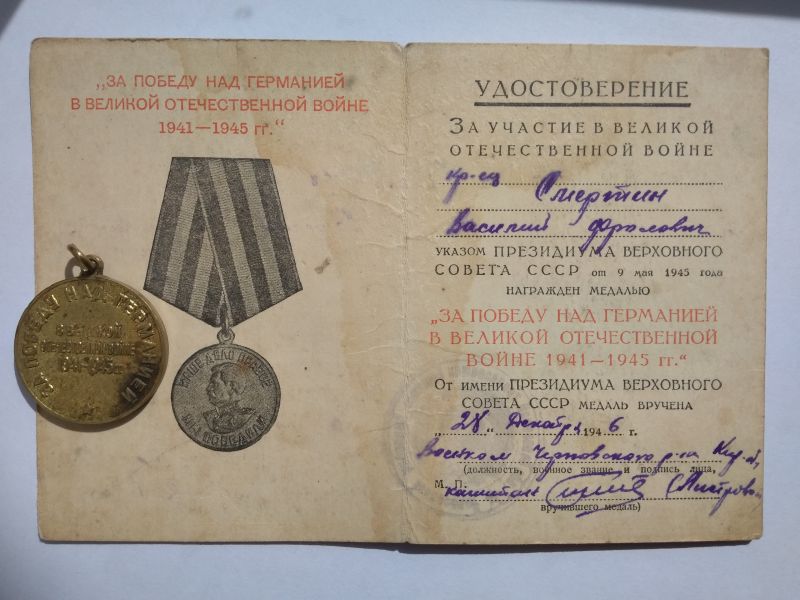 „ЗА ПОБЕДУ НАД ГЕРМАНИЕЙ
В ВЕЛИКОЙ ОТЕЧЕСТВЕННОЙ ВОЙНЕ
1941—1945 гг.“
НАШЕ ДЕЛО ПРАВОЕ
МЫ ПОБЕДИЛИ
ЗА ПОБЕДУ НАД ГЕРМАНИЕЙ
В ВЕЛИКОЙ
ОТЕЧЕСТВЕННОЙ ВОЙНЕ
1941-1945 гг
УДОСТОВЕРЕНИЕ
ЗА УЧАСТИЕ В ВЕЛИКОЙ
ОТЕЧЕСТВЕННОЙ ВОЙНЕ
кр-ец Смертин
Василий Фролович
УКАЗОМ ПРЕЗИДИУМА ВЕРХОВНОГО
СОВЕТА СССР от 9 мая 1945 года
НАГРАЖДЕН МЕДАЛЬЮ
„ЗА ПОБЕДУ НАД ГЕРМАНИЕЙ
В ВЕЛИКОЙ ОТЕЧЕСТВЕННОЙ
ВОЙНЕ 1941—1945 гг.“
От имени ПРЕЗИДИУМА ВЕРХОВНОГО
СОВЕТА СССР МЕДАЛЬ ВРУЧЕНА
„28“ Декабря 1946 г.
Военком р-на
(должность, военное звание и подпись лица,
М. П. капитан
вручившего медаль)